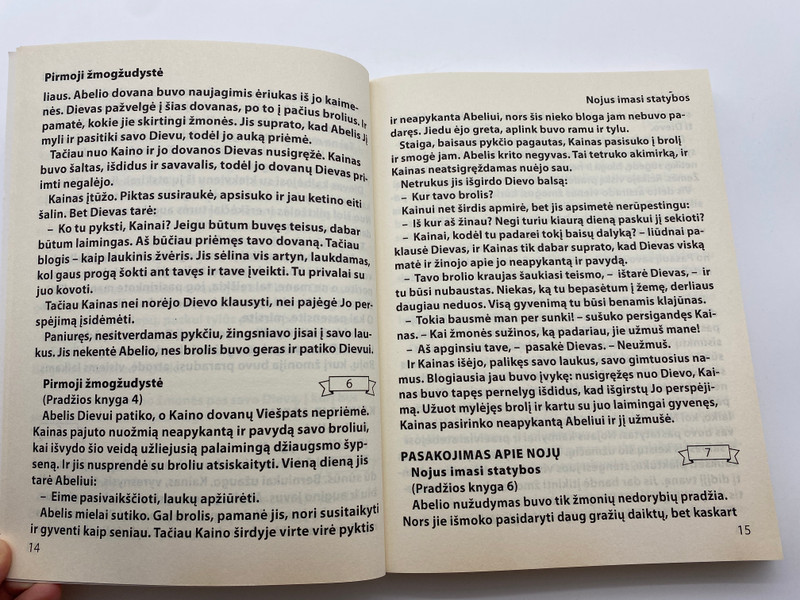 Pirmoji žmogžudystė
liaus. Abelio dovana buvo naujagimis ėriukas iš jo kaime-
nės. Dievas pažvelgė į šias dovanas, po to į pačius brolius. Ir
pamatė, kokie jie skirtingi žmonės. Jis suprato, kad Abelis Jį
myli ir pasitiki savo Dievu, todėl jo auką priėmė.
Tačiau nuo Kaino ir jo dovanos Dievas nusigręžė. Kainas
buvo šaltas, išdidus ir savavalis, todėl jo dovanų Dievas pri-
imti negalėjo.
Kainas įtūžo. Piktas susiraukė, apsisuko ir jau ketino eiti
šalin. Bet Dievas tarė:
– Ko tu pyksti, Kainai? Jeigu būtum buvęs teisus, dabar
būtum laimingas. Aš būčiau priėmęs tavo dovaną. Tačiau
blogis – kaip laukinis žvėris. Jis sėlina vis artyn, laukdamas,
kol gaus progą šokti ant tavęs ir tave įveikti. Tu privalai su
juo kovoti.
Tačiau Kainas nei norėjo Dievo klausyti, nei pajėgė Jo per-
spėjimą įsidėmėti.
Paniuręs, nesitverdamas pykčiu, žingsniavo jisai į savo lau-
kus. Jis nekentė Abelio, nes brolis buvo geras ir patiko Dievui.
Pirmoji žmogžudystė
6
(Pradžios knyga 4)
Abelis Dievui patiko, o Kaino dovanų Viešpats nepriėmė.
Kainas pajuto nuožmią neapykantą ir pavydą savo broliui,
kai išvydo šio veidą užliejusią palaimingą džiaugsmo šyp-
seną. Ir jis nusprendė su broliu atsiskaityti. Vieną dieną jis
tarė Abeliui:
– Eime pasivaikščioti, laukų apžiūrėti.
Abelis mielai sutiko. Gal brolis, pamanė jis, nori susitaikyti
ir gyventi kaip seniau. Tačiau Kaino širdyje virte virė pyktis
14
Nojus imasi statybos
ir neapykanta Abeliui, nors šis nieko bloga jam nebuvo pa-
daręs. Jiedu ėjo greta, aplink buvo ramu ir tylu.
Staiga, baisaus pykčio pagautas, Kainas pasisuko į brolį
ir smogė jam. Abelis krito negyvas. Tai tetruko akimirką, ir
Kainas neatsigręždamas nuėjo sau.
Netrukus jis išgirdo Dievo balsą:
– Kur tavo brolis?
Kainui net širdis apmirė, bet jis apsimetė nerūpestingu:
– Iš kur aš žinau? Negi turiu kiaurą dieną paskui jį sekioti?
– Kainai, kodėl tu padarei tokį baisų dalyką? – liūdnai pa-
klausė Dievas, ir Kainas tik dabar suprato, kad Dievas viską
matė ir žinojo apie jo neapykantą ir pavydą.
– Tavo brolio kraujas šaukiasi teismo, – ištarė Dievas, – ir
tu būsi nubaustas. Niekas, ką tu bepasėtum į žemę, derliaus
daugiau neduos. Visą gyvenimą tu būsi benamis klajūnas.
– Tokia bausmė man per sunki! – sušuko persigandęs Kai-
nas. – Kai žmonės sužinos, ką padariau, jie užmuš mane!
– Aš apginsiu tave, – pasakė Dievas. – Neužmuš.
Ir Kainas išėjo, palikęs savo laukus, savo gimtuosius na-
mus. Blogiausia jau buvo įvykę: nusigręžęs nuo Dievo, Kai-
nas buvo tapęs pernelyg išdidus, kad išgirstų Jo perspėji-
mą. Užuot mylėjęs brolį ir kartu su juo laimingai gyvenęs,
Kainas pasirinko neapykantą Abeliui ir jį užmušė.
PASAKOJIMAS APIE NOJŲ
7
Nojus imasi statybos
(Pradžios knyga 6)
Abelio nužudymas buvo tik žmonių nedorybių pradžia.
Nors jie išmoko pasidaryti daug gražių daiktų, bet kaskart
15